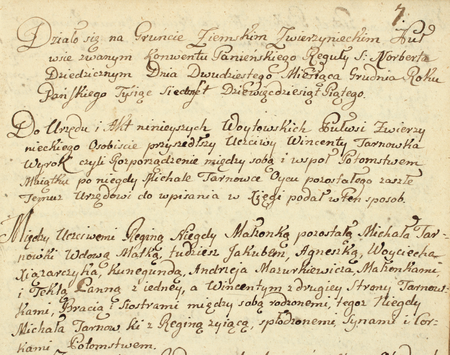 7.
Działo się na Gruncie Ziemskim Zwierzynieckim Pul
wsie zwanym Konwentu Panieńskiego Reguły S: Norberta
Dziedzicznym Dnia Dwudziestego Miesiąca Grudnia Roku
Pańskiego Tysiąc Siedmset Dziewięćdziesiąt Piątego.
Do Urzędu i Akt ninieyszych Woytowskich Pulwsi Zwierzy
nieckiego Osobiście przyszedłszy Uczciwy Wincenty Tarnowka
Wyrok czyli Rozporządzenie między sobą i współ Potomstwem
Maiątku po niegdy Michale Tarnowce Oycu pozostałego zaszłe
Temuż Urzędowi do wpisania w Xięgi podał w ten sposób.
Między Uczciwemi Reginą Niegdy Małżonką pozostałą Michała Tar-
nowki Wdową Matką, tudzież Jakubem, Agnieszką, Woyciecha
Xiążarczyka, Kunegundą, Andrzeja Mazurkiewicza Małżonkami,
i Teklą Panną z iedney, a Wincentym z drugiey Strony Tarnow-
kami, Bracią i Siostrami między sobą rodzonemi, tegoż Niegdy
Michała Tarnowki z Reginą żyiącą, spłodzonemi, Synami i Cor-
kami Potomstwem.